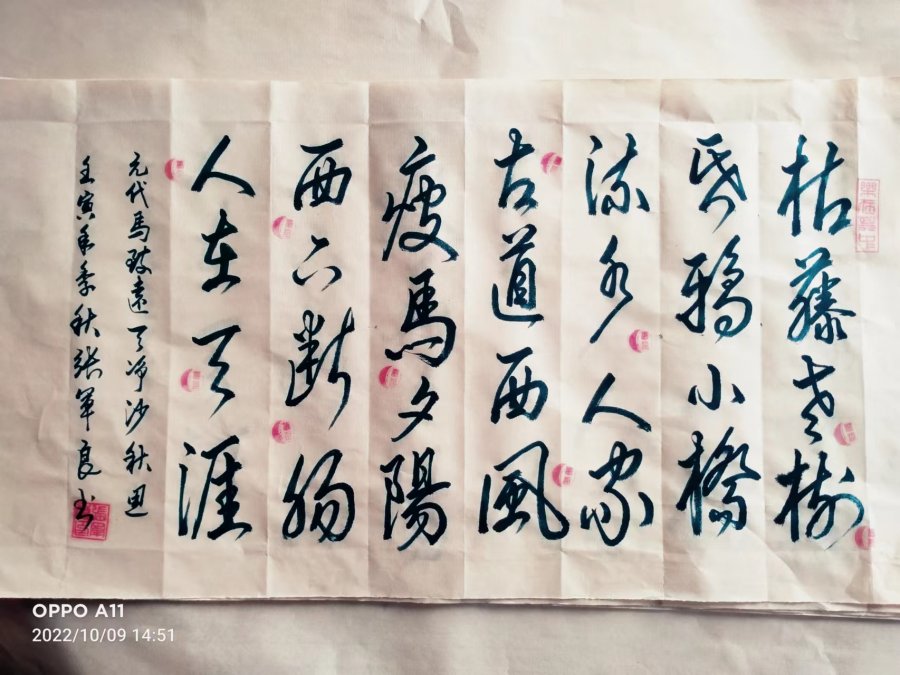 枯藤老樹
昏鴉小橋
流水人家
古道西風
瘦馬夕陽
西下斷腸
人在天涯
元代馬致遠天净沙秋思
壬寅年季秋張軍良书
OPPO A11
2022/10/09 14:51